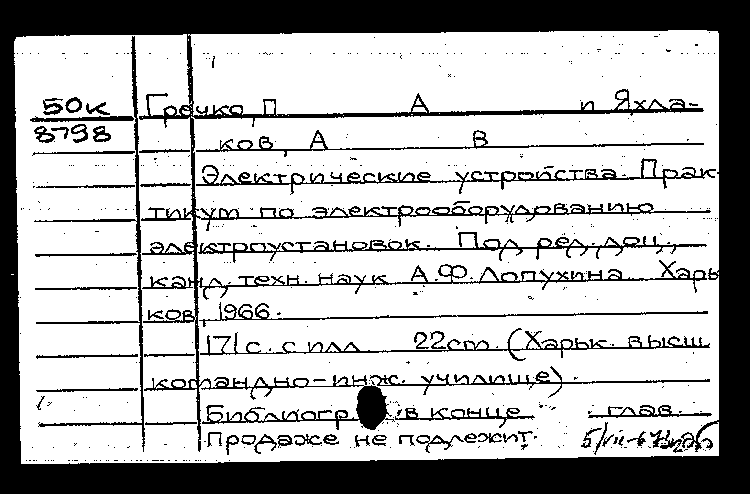 50к Гречко, П А и Яхла-
8798 ков, А В
Электрические устройства. Прак-
тикум по электрооборудованию
электроустановок. Под ред. доц.,
канд. техн. наук А.Ф. Лопухина. Харь
ков, 1966.
171 с. с илл. 22 cm. (Харьк. высш
командно-инж. училище).
Библиогр. в конце глав.
Продаже не подлежит.